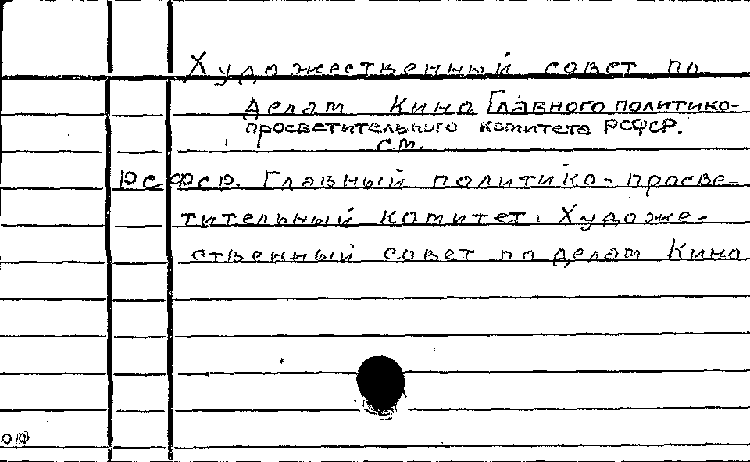 Художественный совет по
делам Кино Главного политико-
просветительного комитета РСФСР.
см.
РСФСР. Главный политико-просве-
тительный комитет. Художе-
ственный совет по делам Кино